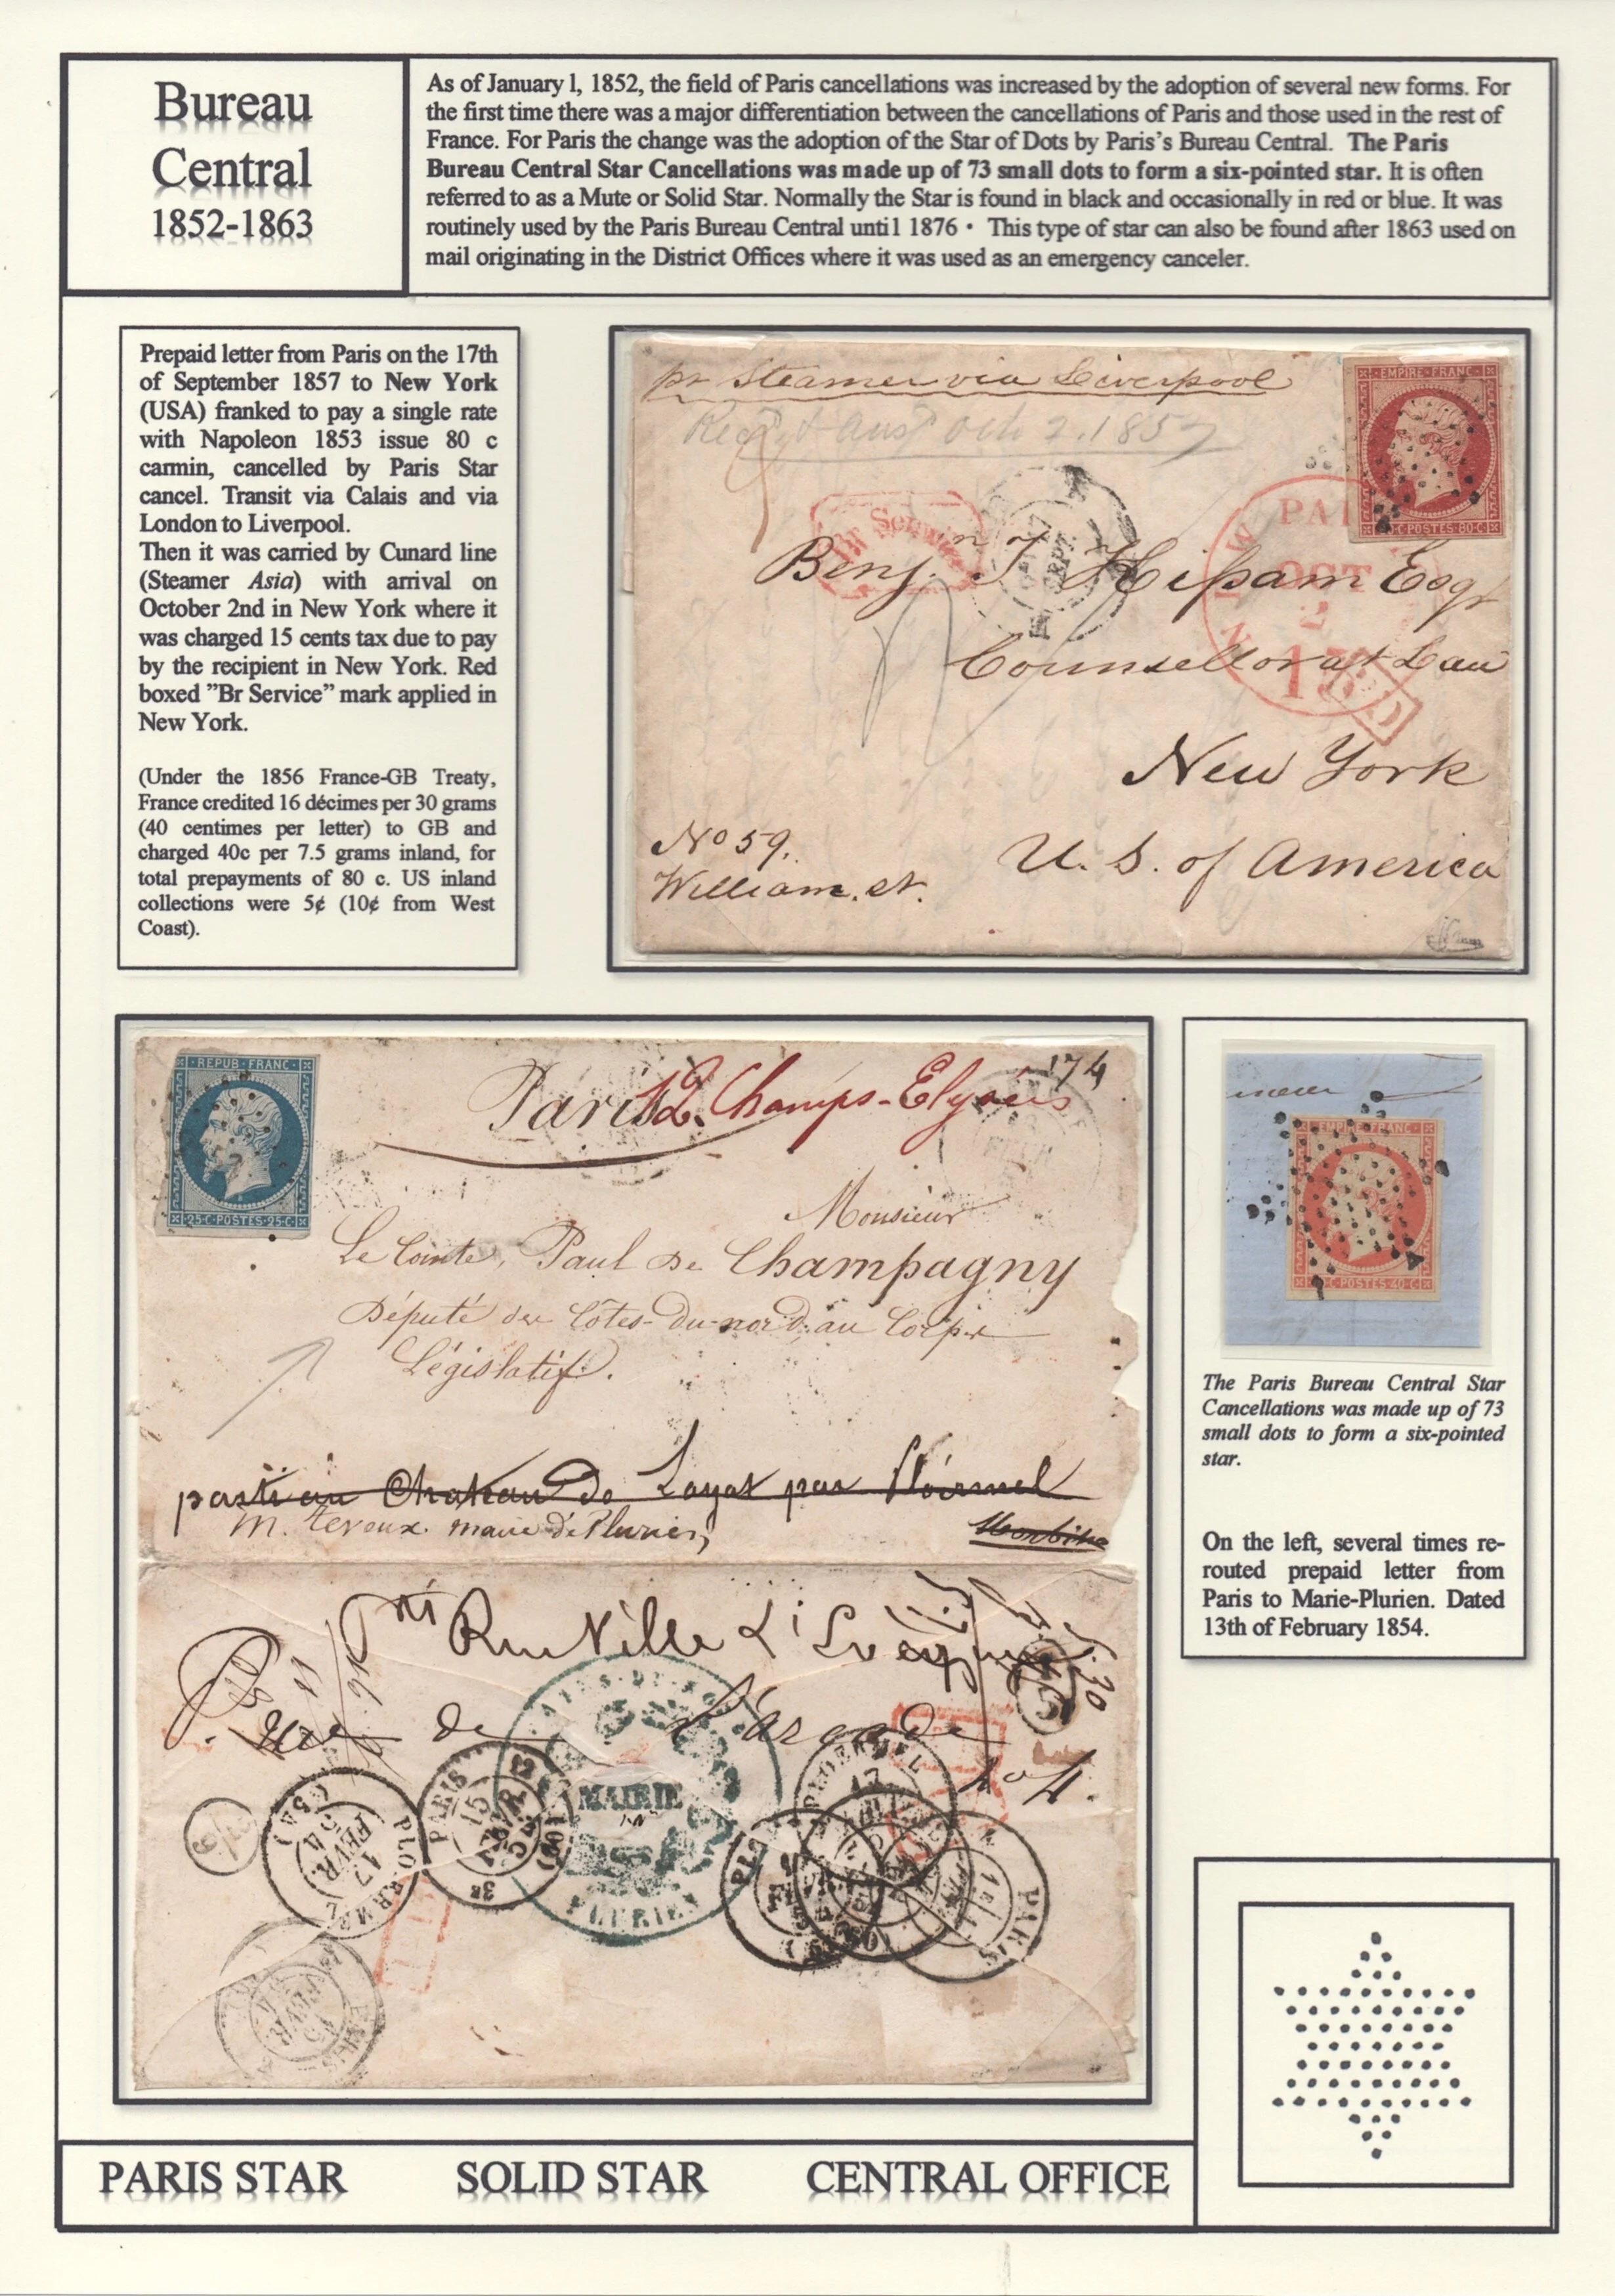 Bureau
Central
1852-1863
As of January 1, 1852, the field of Paris cancellations was increased by the adoption of several new forms. For
the first time there was a major differentiation between the cancellations of Paris and those used in the rest of
France. For Paris the change was the adoption of the Star of Dots by Paris's Bureau Central. The Paris
Bureau Central Star Cancellations was made up of 73 small dots to form a six-pointed star. It is often
referred to as a Mute or Solid Star. Normally the Star is found in black and occasionally in red or blue. It was
routinely used by the Paris Bureau Central until 1876 • This type of star can also be found after 1863 used on
mail originating in the District Offices where it was used as an emergency canceler.
Prepaid letter from Paris on the 17th
of September 1857 to New York
(USA) franked to pay a single rate
with Napoleon 1853 issue 80 c
carmin, cancelled by Paris Star
cancel. Transit via Calais and via
London to Liverpool.
Then it was carried by Cunard line
(Steamer Asia) with arrival on
October 2nd in New York where it
was charged 15 cents tax due to pay
by the recipient in New York. Red
boxed ”Br Service” mark applied in
New York.
(Under the 1856 France-GB Treaty,
France credited 16 décimes per 30 grams
(40 centimes per letter) to GB and
charged 40c per 7.5 grams inland, for
total prepayments of 80 c. US inland
collections were 5¢ (10¢ from West
Coast).
pr Steamer via Liverpool
Oct 2. 1857
EMPIRE FRANC
C·POSTES·80·C
Br Service
OCT
2
15
Benj. T. Esqr
Counsellor at Law
New York
U. S. of America
No 59.
William. st.
REPUB·FRANC
25·C·POSTES·25·C
174
Paris 12. Champs-Elysées
Monsieur
Le Comte, Paul De Champagny
Député des Côtes-du-nord, au Corps
Législatif.
parti au Chateau de Loyat par Ploërmel
Morbihan
Rue Ville L'Evêque
Rue de l'Arcade
No 4.
MAIRIE
PLURIEN
PLOERMEL
17
FEVR
54
PARIS
15
FEVR
54
(60)
PLOERMEL
17
PARIS
EMPIRE FRANC
C·POSTES·40·C
The Paris Bureau Central Star
Cancellations was made up of 73
small dots to form a six-pointed
star.
On the left, several times re-
routed prepaid letter from
Paris to Marie-Plurien. Dated
13th of February 1854.
PARIS STAR SOLID STAR CENTRAL OFFICE